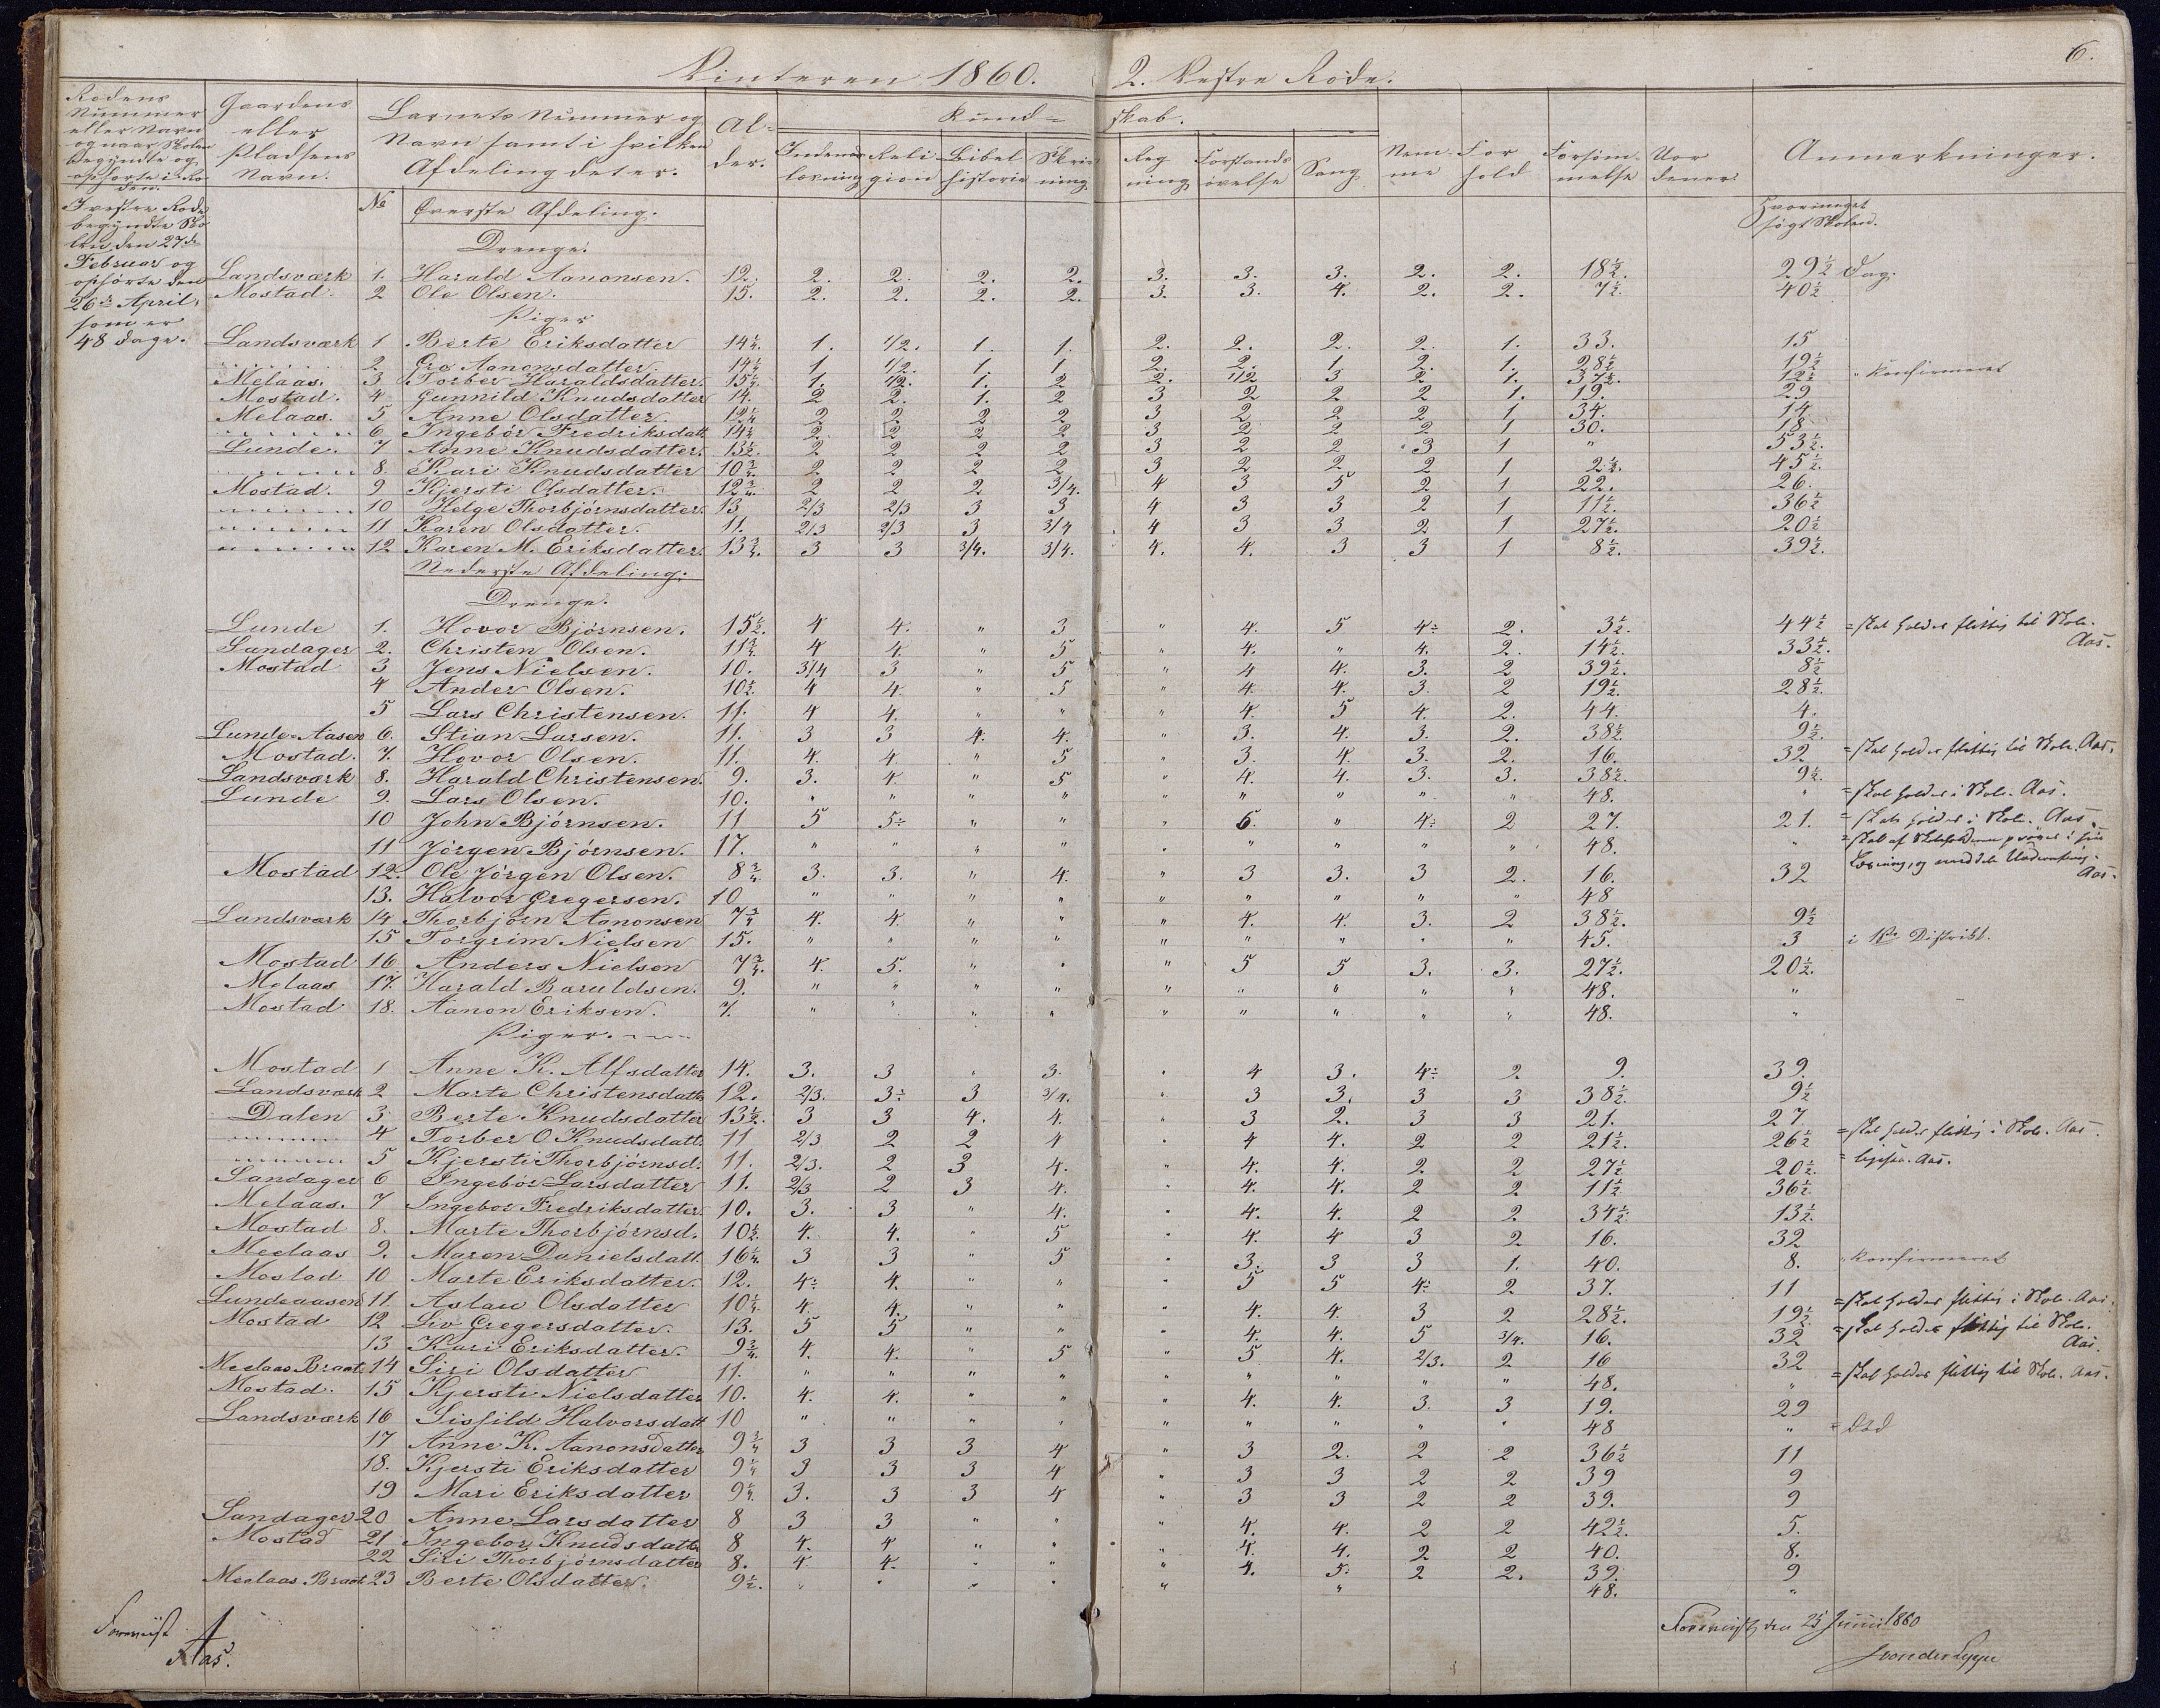 Vinteren 1860. 2. Vestre Rode. 6.
Rodens Nummer eller Navn og naar Skolen begyndte og ophørte i Roden.
Gaardens eller Pladsens Navn.
Barnets Nummer og Navn samt i hvilken Afdeling det er.
Alder.
Kundskab.
Indenadlæsning Religion Bibelhistorie Skrivning Regning Forstandsøvelse Sang
Nemme Forhold Forsømmelse Anmærkninger.
I vestre Rode begyndte Skolen den 27de Februar og ophørte den 26de April, som er 48 Dage.
No Øverste Afdeling. Hvormeget søgt Skolen.
Drenge.
Landsværk 1. Harald Aanonsen. 12. 2. 2. 2. 2. 3. 3. 3. 2. 2. 18½. 29½ Dag.
Mostad. 2 Ole Olsen. 15. 2. 2. 2. 2. 3. 3. 4. 2. 2. 7½. 40½
Piger
Landsværk 1 Berte Eriksdatter 14¼. 1. 1/2. 1. 1. 2. 2. 2. 2. 1. 33. 15
" 2. Gro Aanonsdatter. 14¼ 1 1/2. 1. 1 2. 2. 1 2. 1. 28½ 19½
Melaas. 3 Torber Haraldsdatter. 15½. 1. 1/2. 1. 2 2. 1/2 3 2 1. 37½. 12½ " konfirmeret
Mostad. 4 Gunnild Knudsdatter 14. 2 2. 1. 2 3 2 2 2 1. 19. 29
Melaas. 5 Anne Olsdatter. 12¼ 2 2 2 2 3 2 2 2 1 34. 14
" 6 Ingebór Fredriksdatt. 14¼ 2 2 2 2 3 2 2 2 1 30. 18
Lunde. 7 Anne Knudsdatter. 13½. 2 2 2 2 3 2 2 3 1 " 53½.
" 8. Kari Knudsdatter 10¾ 2 2 2 2 3 2 2 2 1 2½. 45½.
Mostad. 9 Kjersti Olsdatter. 12¾. 2 2 2 3/4. 4 3 5 2 1 22. 26.
" 10 Helge Thorbjörnsdatter. 13 2/3 2/3 3 3 4 3 3 2 1 11½. 36½
" 11 Karen Olsdatter. 11. 2/3 2/3 3 3/4 4 3 3 2 1 27½. 20½
" 12 Karen M. Eriksdatter. 13¾. 3 3 3/4. 3/4. 4. 4. 3 3 1 8½. 39½.
Nederste Afdeling.
Drenge.
Lunde 1. Hovor Bjørnsen. 15½. 4 4. " 3 " 4. 5 4÷ 2. 3½. 44½ = skal holdes flittig til Skole. Aas.
Sandager 2. Christen Olsen. 11¾. 4 4 " 5 " 4. " 4. 2. 14½. 33½.
Mostad 3 Jens Nielsen. 10. 3/4 3 " 5 " 4 4. 3. 2 39½. 8½
4 Ander Olsen. 10½. 4 4. " 5 " 4. 4. 3. 2 19½. 28½.
5 Lars Christensen. 11. 4 4. " " " 4. 5 4. 2. 44. 4.
Lunde-Aasen 6. Stian Larsen. 11. 3 3 4. 4. " 3. 4. 3. 2. 38½. 9½.
Mostad. 7. Hovor Olsen. 11. 4. 4. " 5 " 3. 4. 3. 2. 16. 32 = skal holdes flittig til Skole. Aas.
Landsværk 8. Harald Christensen. 9. 3. 4 " 5 " 4. 4. 3. 3. 38½. 9½.
Lunde 9. Lars Olsen. 10. " " " " " " " " " 48. " = skal holdes i Skole. Aas.
10 John Bjørnsen. 11 5 5÷ " " " 6. " 4÷ 2 27. 21. = skal holdes i Skole. Aas.
11 Jörgen Bjørnsen. 17. " " " " " " " " " 48. " = skal af Skoleholderen prøves i sin Læsning, og meddele Underretning. Aas.
Mostad 12. Ole Jörgen Olsen. 8¾. 3. 3. " 4. " 3 3. 3 2. 16. 32
13. Halvor Gregersen. 10 " " " " " " " " " 48
Landsværk 14 Thorbjørn Aanonsen 7¾ 4. 4. " " " 4. 4. 3. 2 38½. 9½
15 Torgrim Nielsen 15. " " " " " " " " " 45. 3 i 1ste Distrikt.
Mostad 16 Anders Nielsen 7¾. 4. 5. " " " 5 5 3. 3. 27½. 20½.
Melaas 17. Harald Baruldsen. 9. " " " " " " " " " 48. "
Mostad 18. Aanon Eriksen. 7. " " " " " " " " " 48. "
Piger.
Mostad 1 Anne K. Alfsdatter 14. 3. 3 " 3. " 4 3. 4÷ 2. 9. 39.
Landsværk 2 Marte Christensdatt. 12. 2/3. 3÷ 3 3/4. " 3 3. 3 3 38½. 9½
Dalen 3. Berte Knudsdatter 13½. 3 3 4. 4. " 3 2. 3 3 21. 27.
" 4 Torber O. Knudsdatt. 11 2/3 2 2 4 " 4 4. 2 2 21½. 26½ = skal holdes flittig i Skole. Aas.
" 5 Kjersti Thorbjörnsd. 11. 2/3. 2 3 4. " 4. 4. 2 2 27½ 20½. = ligesaa. Aas.
Sandager 6 Ingebor Larsdatter 11. 2/3 2 3 4. " 4. 4. 2 2 11½ 36½
Melaas. 7 Ingebor Fredriksdatter 10. 3. 3 " 4. " 4. 4. 2 2. 34½ 13½.
Mostad 8. Marte Thorbjörnsd. 10½. 4. 4. " 5 " 4. 4 3 2 16. 32
Meelaas 9. Maren Danielsdatt. 16¼. 3 3 " 5 " 3. 3 3 1. 40. 8. " konfirmeret
Mostad 10 Marte Eriksdatter. 12. 4÷ 4. " " " 5 5 4÷ 2 37. 11
Lundeaasen 11. Aslau Olsdatter 10¼. 4. 4. " " " 4. 4. 3 2 28½. 19½ = skal holdes flittig i Skole. Aas.
Mostad 12 Liv Gregersdatter. 13. 5 5 " " " 4. 4. 5 3/4. 16. 32 = skal holdes flittig til Skole. Aas.
13 Kari Eriksdatter. 9¾. 4. 4. " 5 " 5 4. 2/3. 2 16 32
Meelaas Braat. 14 Siri Olsdatter 11. " " " " " " " " " 48. " = skal holdes flittig til Skole. Aas.
Mostad. 15 Kjersti Nielsdatter 10. 4. 4. " " " 4. 4. 3. 3 19. 29
Landsværk 16 Sissild Halvorsdatt 10 " " " " " " " " " 48 " = död
17 Anne K. Aanonsdatter 9¾ 3 3 3 4 " 3 2. 2 2 36½ 11
18. Kjersti Eriksdatter 9¼ 3 3 3 4 " 3 3 2 2 39 9
19 Mari Eriksdatter 9¼. 3. 3 3 4 " 3 3 2 2 39. 9
Sandager 20 Anne Larsdatter 8 3 3 " " " 4. 4. 2 2 42½. 5.
Mostad 21 Ingebor Knudsdatt. 8 4. 4 " " " 4. 4. 2 2 40. 8.
22 Siri Thorbjørnsdatter 8. 4 4. " " " 4. 5. 2 2. 39. 9
Meelaas Braat 23 Berte Olsdatter. 9½. " " " " " " 48. "
Foreviist Aas.
Foreviist, den 25 Junii 1860